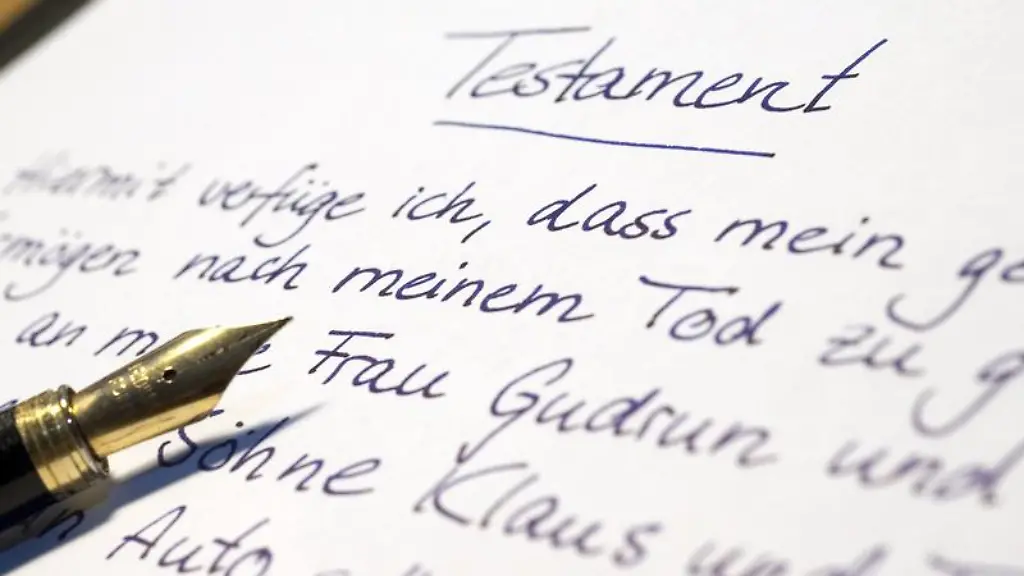 Testament
Hiermit verfüge ich, dass mein ge
mögen nach meinem Tod zu g
an m e Frau Gudrun und
Söhne Klaus und
Auto